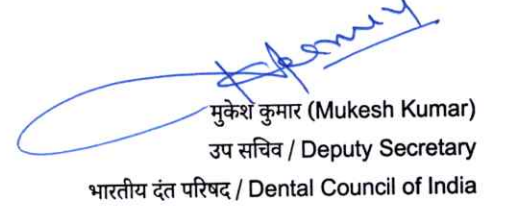 मुकेश कुमार (Mukesh Kumar)
उप सचिव / Deputy Secretary
भारतीय दंत परिषद / Dental Council of India